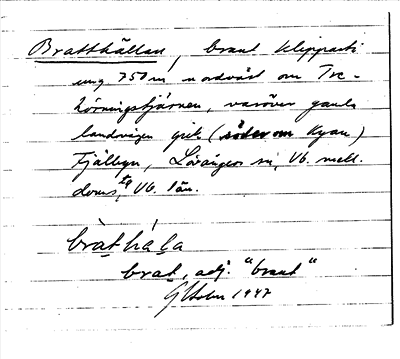 Bratthällan, brant klipparti
ung 750 m nordväst om Tre-
körningstjärnen, varöver gamla
landvägen gick (söder om Kyan)
Fjälbyn, Lövångers sn, Vb. mell.
doms, Vb. län.
bràthá la
brat, adj. "brant"
1947